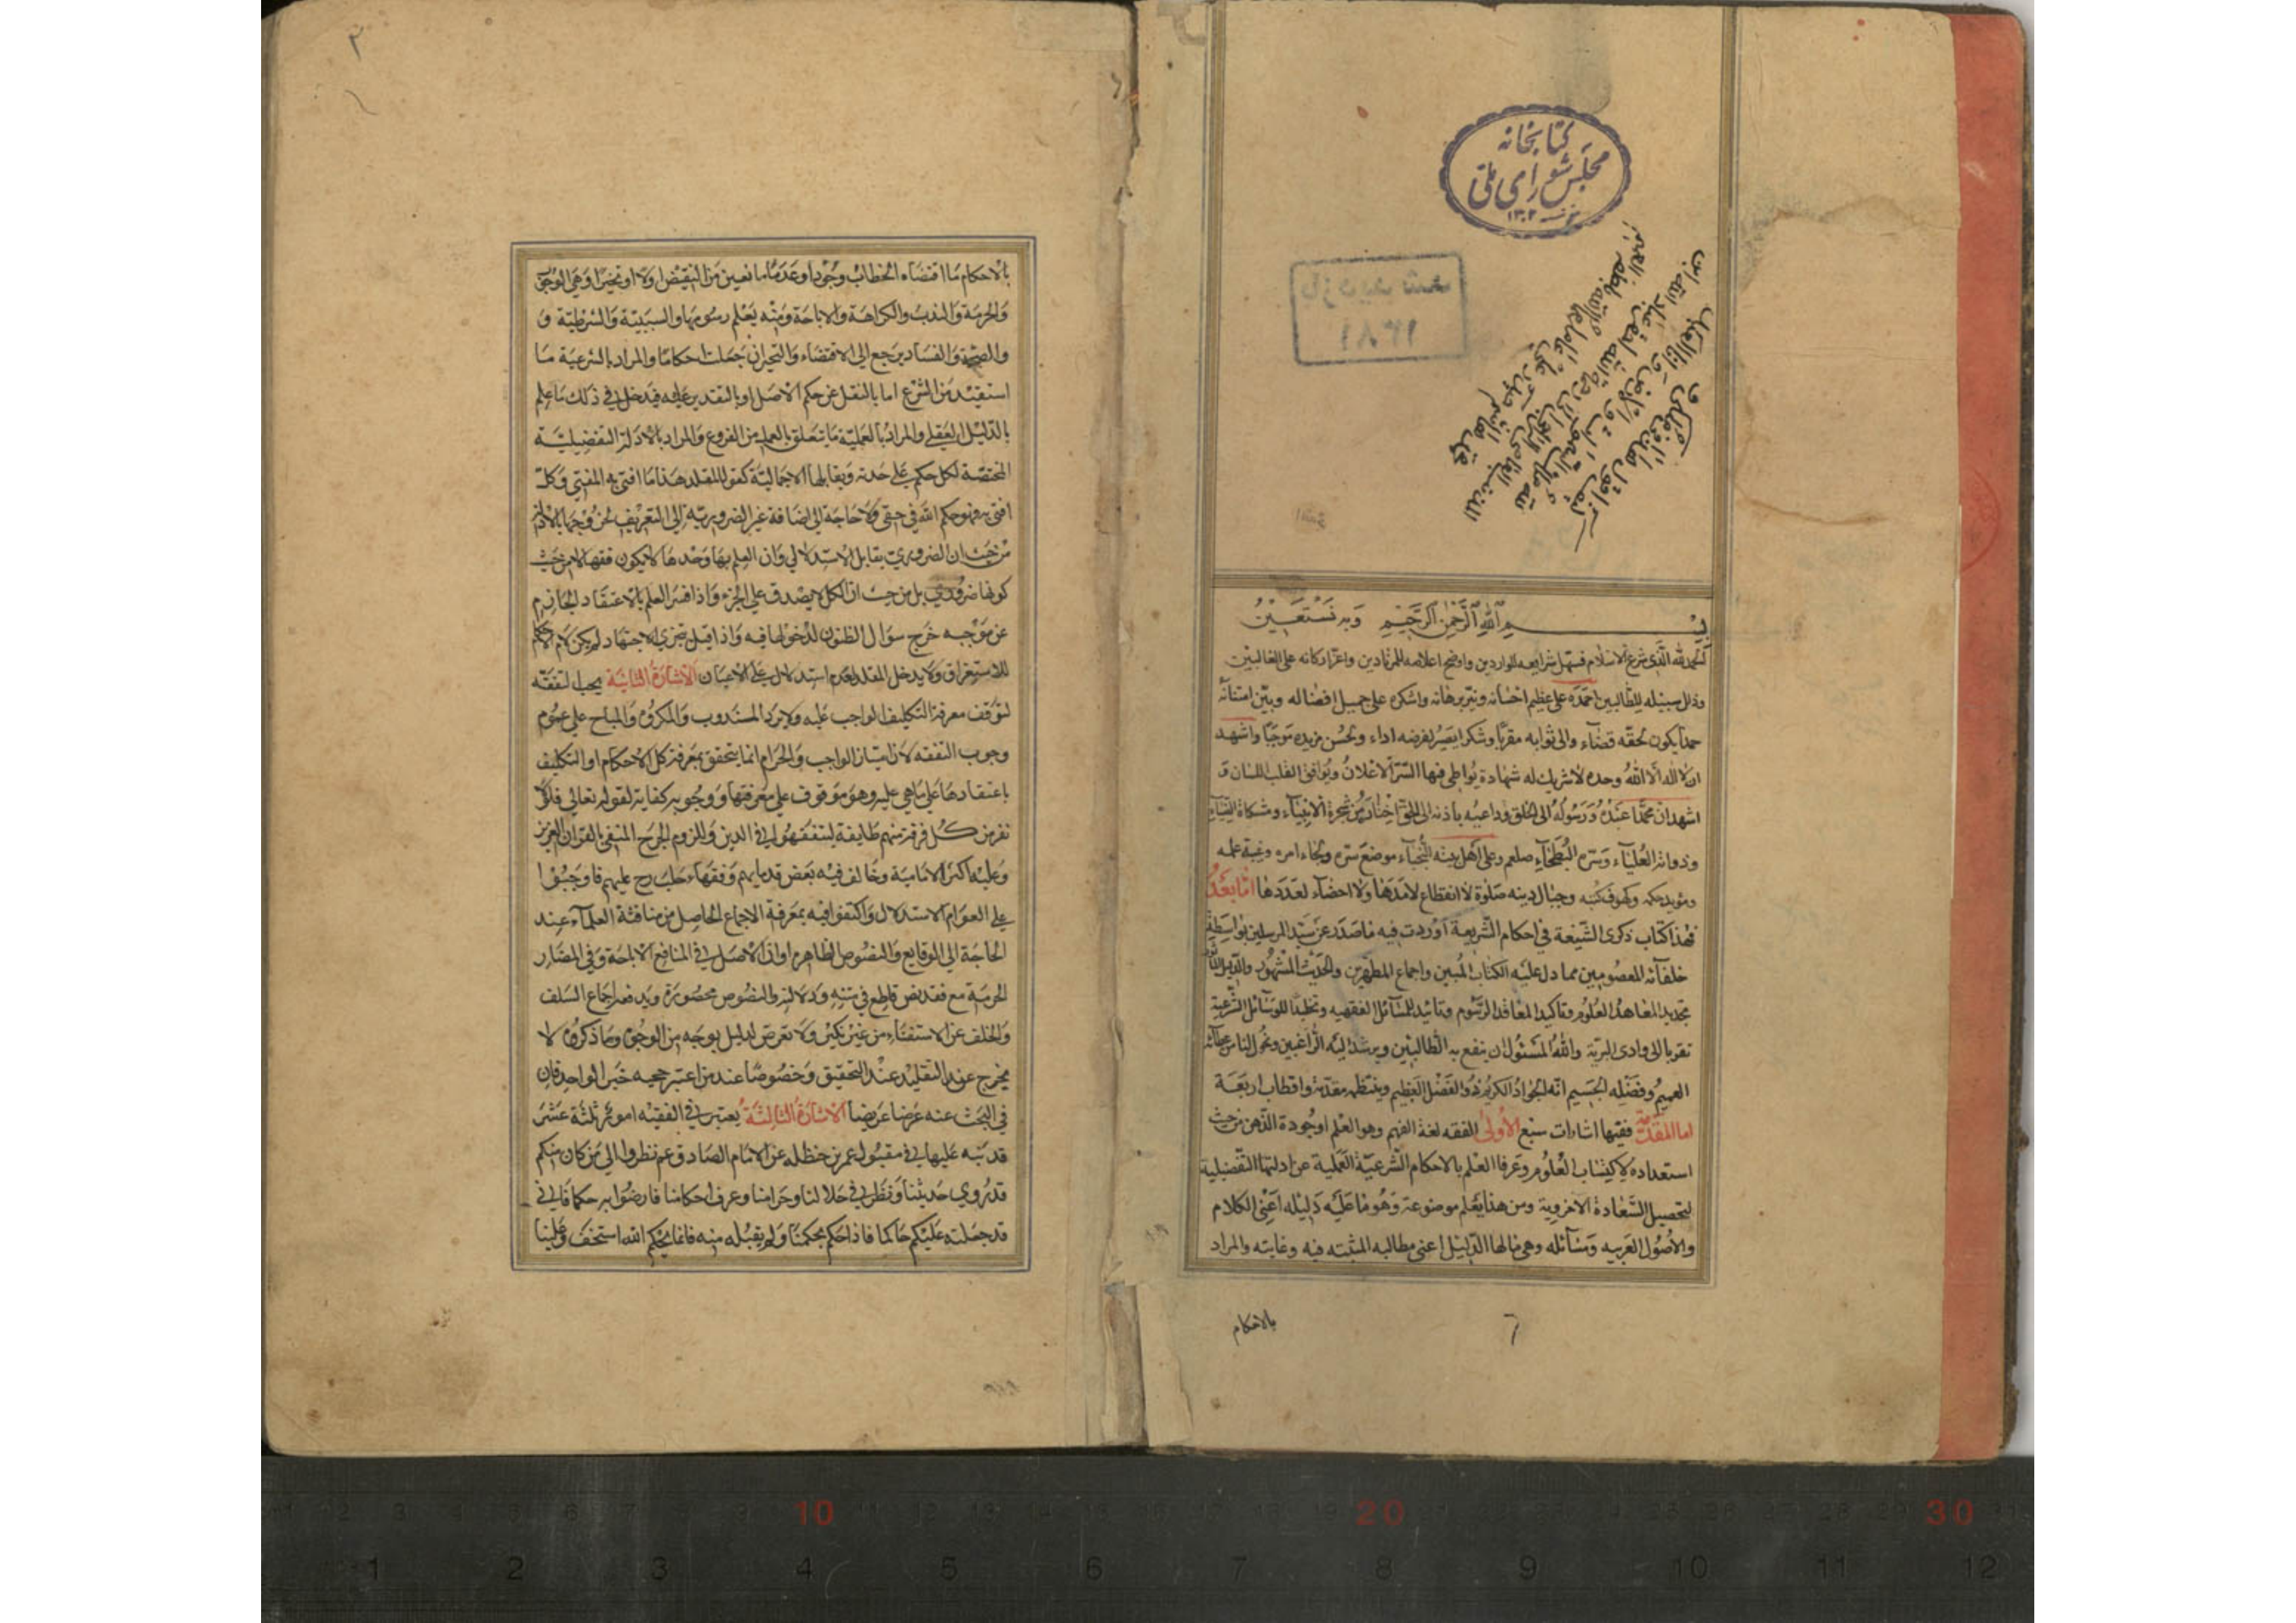 كتابخانه
مجلس شورای ملی
١٣٠٢
بازدید شد
١٣٨١
بسم الله الرحمن الرحيم وبه نستعين
الحمد لله الذي شرع الاسلام فسهل شرايعه للواردين واوضح اعلامه للمرتادين واعز اركانه على الغالبين
وذلل سبيله للطالبين احمده على عظيم احسانه ونير برهانه واشكره على جميل افضاله وبين امتنانه
حمدا يكون لحقه قضاء والى ثوابه مقربا وشكرا يصير لفرضه اداء ولحسن مزيده موجبا واشهد
ان لا اله الا الله وحده لا شريك له شهادة يواطى فيها السر الاعلان ويوافق القلب اللسان و
اشهد ان محمدا عبده ورسوله الى الخلق وداعيه باذنه الى الحق اختاره من شجرة الانبياء ومشكاة الضياء
وذوابة العلياء وسرة البطحاء صلعم وعلى اهل بيته النجباء موضع سره ولجاء امره وعيبة علمه
وموئد حكمه وكهوف كتبه وجبال دينه صلوة لا انقطاع لامدها ولا احصاء لعددها اما بعد
فهذا كتاب ذكرى الشيعة في احكام الشريعة اوردت فيه ما صدر عن سيد المرسلين بواسطة
خلفائه المعصومين مما دل عليه الكتاب المبين واجماع المطهرين والحديث المشهور والدليل
تجديدا لمعاهد العلوم وتاكيدا لمعاقد الرسوم وتائيدا للمسائل الفقهيه وتخليدا للوسائل الشرعية
تقربا الى وادى البرية والله المسئول ان ينفع به الطالبين ويرشد اليه الراغبين ونحول الناس عطائه
العميم وفضله الجسيم انه الجواد الكريم ذو الفضل العظيم وينتظمه مقدمة واقطاب اربعة
اما المقدمة ففيها اشارات سبع الاولى الفقه لغة الفهم وهو العلم او جودة الذهن من حيث
استعداده لاكتساب العلوم وعرفا العلم بالاحكام الشرعية العملية عن ادلتها التفصيلية
لتحصيل السعادة الاخروية ومن هذا يعلم موضوعه وهو ما عليه دليله اعني الكلام
والاصول العربيه ومسائله وهي مالها الدليل اعني مطالبه المثبته فيه وغايته والمراد
بالاحكام
٢
بالاحكام ما اقتضاه الخطاب وجودا وعدما مانعين من النقيض اولا او تخييرا وهي الوجوب
والحرمة والندب والكراهة والاباحة ومنه يعلم رسومها والسببية والشرطية و
والصحة والفساد يرجع الى الاقتضاء والتخيران جعلت احكاما والمراد بالشرعية ما
استفيد من الشرع اما بالنقل عن حكم الاصل او بالتقدير عليه فيدخل في ذلك ما علم
بالدليل العقلي والمراد بالعملية ما يتعلق بالعمل من الفروع والمراد بالادلة التفضيلية
المختصة لكل حكم على حدته ويقابلها الاجمالية كقول المقلد هذا ما افتى به المفتي وكل
افتى به فهو حكم الله في حقي ولا حاجة الى اضافة غير الضرورية الى التعريف لخروجها بالادلة
من حيث ان الضروري يقابل الاستدلالي وان العلم بها وحدها لا يكون فقها لا من حيث
كونها ضروري بل من حيث ان الكل لا يصدق على الجزء واذا فسر العلم بالاعتقاد الجازم
عن موجبه خرج سؤال الظنون لدخولها فيه واذا قيل بتجزى الاجتهاد لم يكن لام الاحكام
للاستغراق ولا يدخل المقلد لعدم استدلال على الاعيان الاشارة الثانية يجب التفقه
لتوقف معرفة التكليف الواجب عليه ولا يرد المندوب والمكروه والمباح على عموم
وجوب التفقه لان امتياز الواجب والحرام انما يتحقق بمعرفة كل الاحكام او التكليف
باعتقادها على ما هي عليه وهو موقوف على معرفتها ووجوبه كفاية لقوله تعالى فلولا
نفر من كل فرقة منهم طايفة ليتفقهوا في الدين وللزوم الحرج المنفي بالقران العزيز
وعليه اكثر الامامية وخالف فيه بعض قدمايهم وفقهاء حلب رح عليهم فاوجبوا
على العوام الاستدلال واكتفوا فيه بمعرفة الاجماع الحاصل من مناقشة العلماء عند
الحاجة الى الوقايع والنصوص الظاهرة او ان الاصل في المنافع الاباحة وفي المضار
الحرمة مع فقد نص قاطع في متنه ودلالته والنصوص محصورة ويدفعه اجماع السلف
والخلف عن الاستفتاء من غير نكير ولا تعرض لدليل بوجه من الوجوه وما ذكروه لا
يخرج عن التقليد عند التحقيق وخصوصا عند من اعتبر حجيه خبر الواحد فان
في البحث عنه عرضا عريضا الاشارة الثالثة يعتبر في الفقيه امور ثلثة عشر
قد نبه عليها في مقبول عمر بن حنظله عن الامام الصادق عم نظروا الى من كان منكم
قد روي حديثنا ونظر في حلالنا وحرامنا وعرف احكامنا فارضوا به حكما فاني
قد جعلته عليكم حاكما فاذا حكم بحكمنا ولم يقبله منه فانما بحكم الله استخف وعلينا